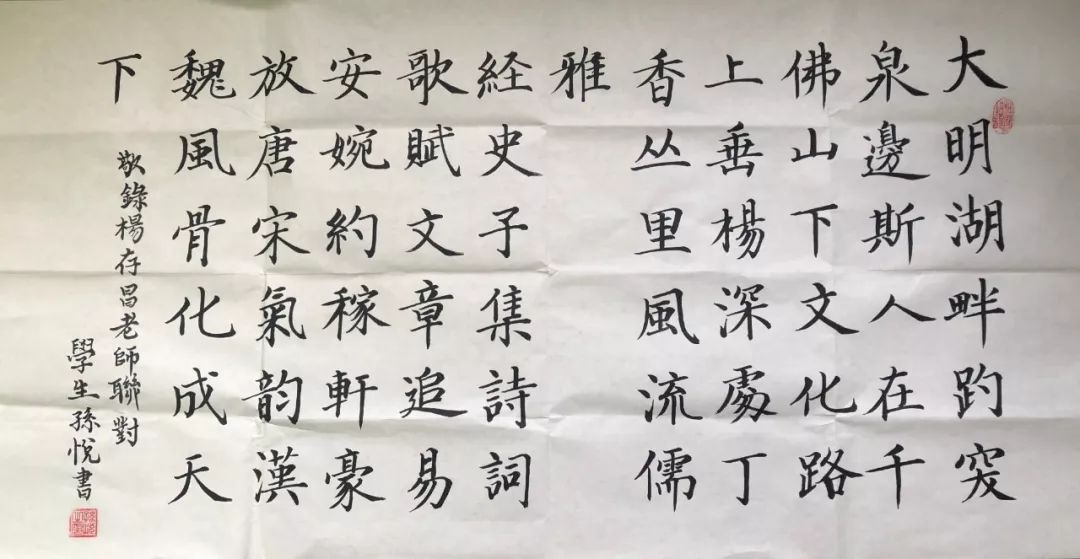 大明湖畔趵突
泉邊斯人在千
佛山下文化路
上垂楊深處丁
香丛里風流儒
雅
経史子集詩詞
歌賦文章追易
安婉約稼軒豪
放唐宋氣韵漢
魏風骨化成天
下
敬錄楊存昌老師聯對
學生孫悅書